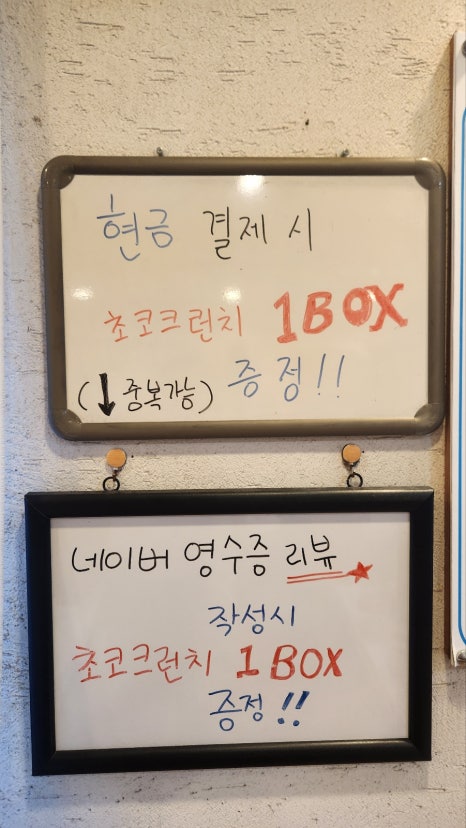 현금 결제 시
초코크런치 1BOX
(↓중복가능) 증정!!
네이버 영수증 리뷰
작성시
초코크런치 1 BOX
증정!!